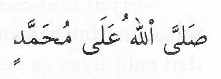 صَلَّى ٱللهُ عَلَى مُحَمَّدٍ